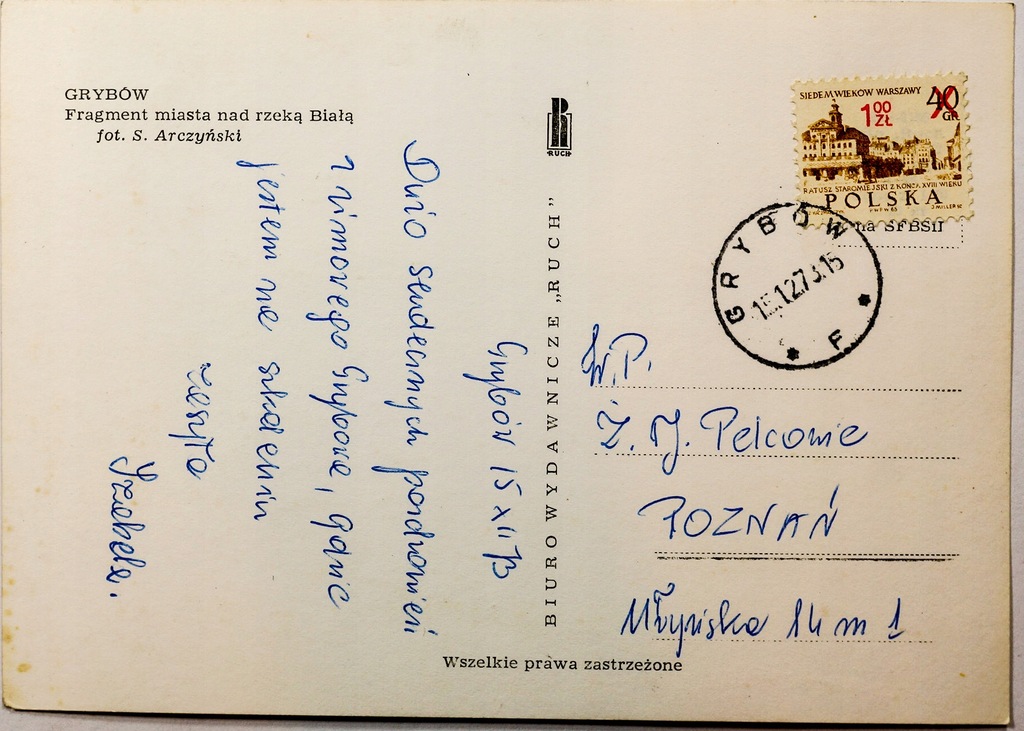 GRYBÓW
Fragment miasta nad rzeką Białą
fot. S. Arczyński
Grybów 15 XII 73
Dużo serdecznych pozdrowień
z zimowego Grybowa, gdzie
jestem na szkoleniu
Izabela.
RUCH
BIURO WYDAWNICZE „RUCH"
SIEDEM WIEKÓW WARSZAWY
40 GR
1 00 ZŁ
RATUSZ STAROMIEJSKI Z KOŃCA XVIII WIEKU
POLSKA
na SFBSiI
GRYBÓW
15.12.73.15
* F *
W.P.
Ż. J. Pelcowie
POZNAŃ
Młyńska 14 m 1
Wszelkie prawa zastrzeżone